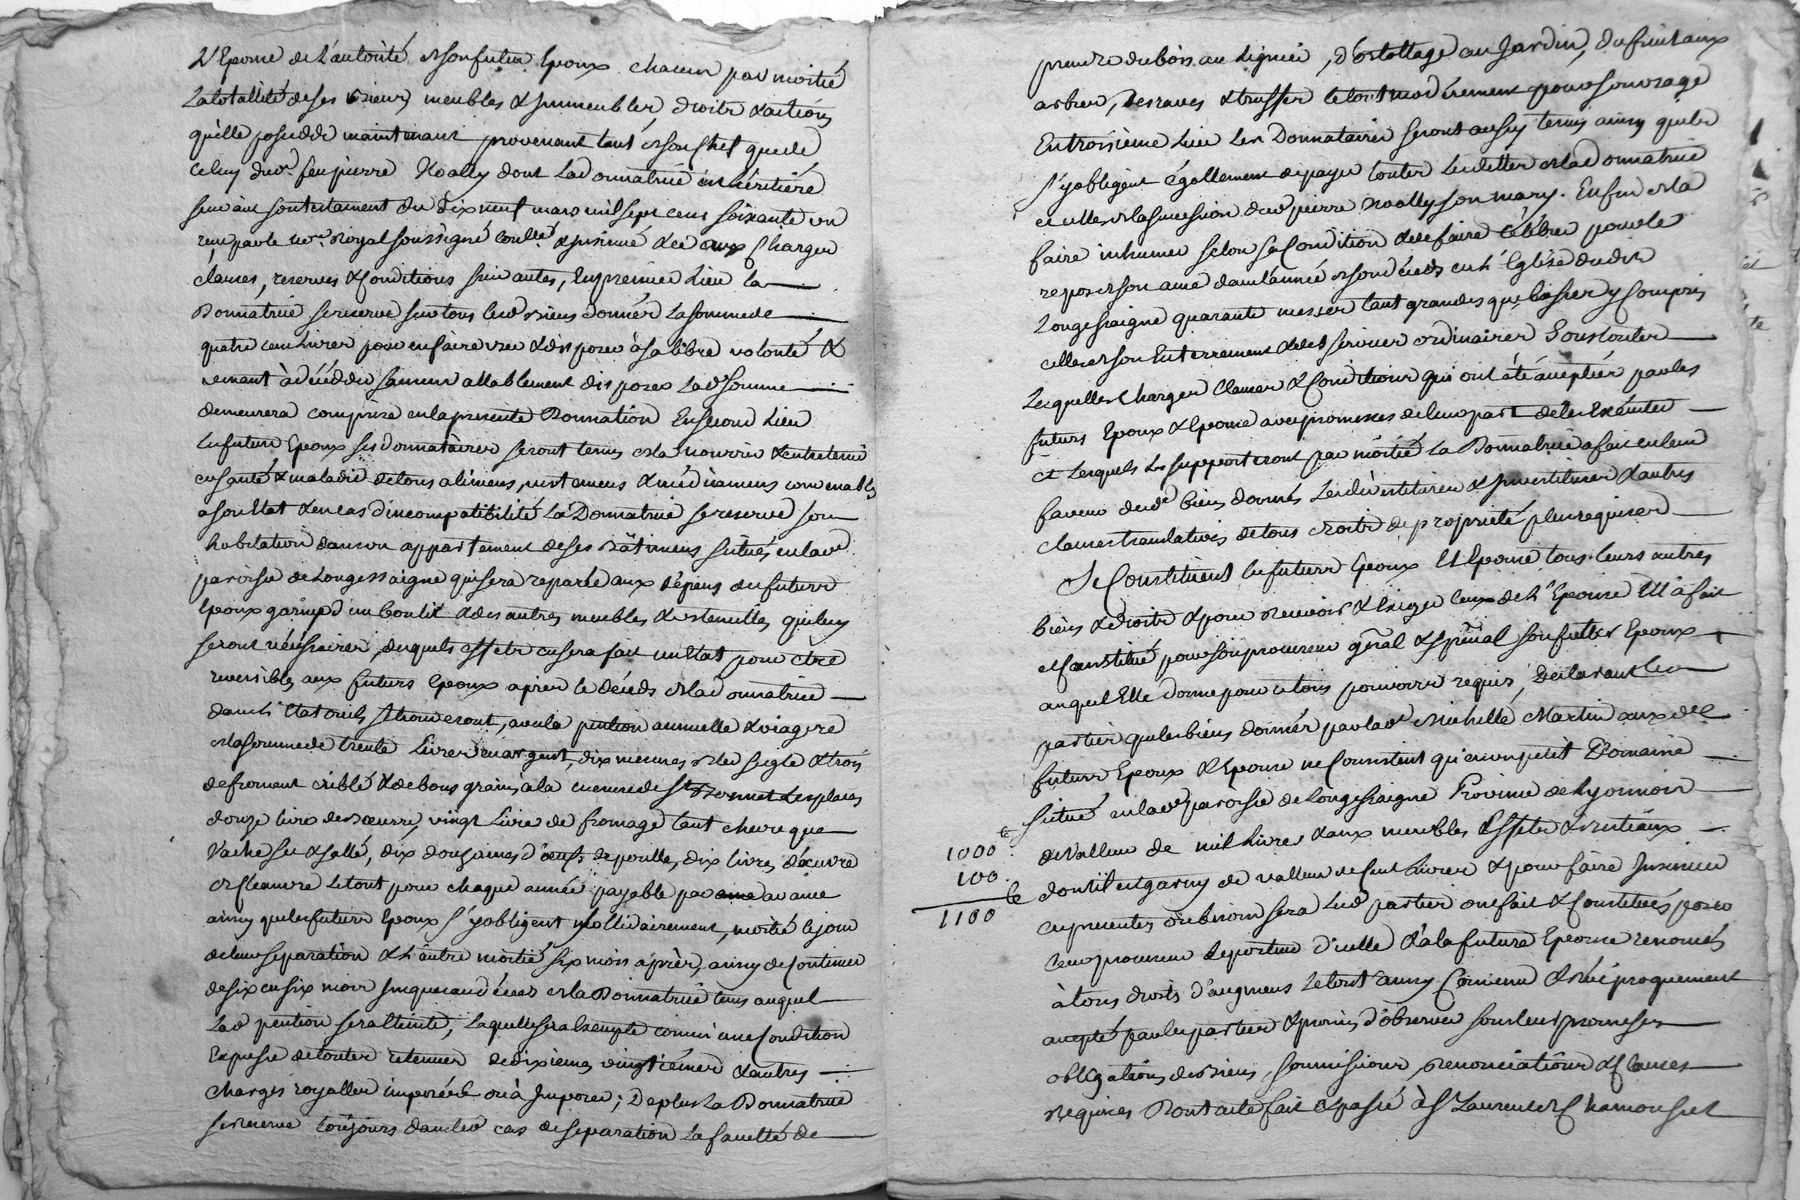 L'Epouse de L'autorité de son futur Epoux chacun par moitié
La totallité de ses biens, meubles & immeubles, droits & actions
qu'elle possedde maintenant provenant tant de son chef que de
Celuy dud. feu pierre Noally dont La Donnatrice est héritière
suivant son testament du dix neuf mars mil sept cent soixante un
reçu par le no.re Royal soussigné Conllé & insinué & ce aux Charges
clauses, reserves & Conditions suivantes, En premier Lieu la
Donnatrice se reserve sur tous lesd biens donnés La somme de
quatre cent Livres pour en faire user & disposer à sa libre volonté &
venant à décédder sans en avoir allablement disposer Lad somme
demeurera comprise en la presente Donnation En second Lieu
Les futurs Epoux ses donnataires seront tenus de la nourrir & entretenir
en santé & maladie de tous alimens, vestemens & médicamens convenables
a son Etat & en cas d'incompatibilité La Donnatrice se reserve son
habitation dans un appartement de ses Bâtimens situés en lad
paroisse de Longessaigne qui sera reparée aux dépens des futurs
Epoux garny d'un bon lit & des autres meubles & ustenciles qui luy
seront nécessaires, desquels effets en sera fait un Etat pour etre
reversibles aux futurs Epoux après le décéds de la donnatrice
dans L'Etat où ils se trouveront, avec la pention annuelle & viagere
de la somme de trente Livres en argent, dix mesures de bled seigle & trois
de froment criblé & de bons grains à la mesure de St Bonnet Les places
douze livres de Beurre, vingt Livre de fromage tant chevre que
Vache sec & sallé, dix douzaines d'œufs de poulles, dix livres d'œuvre
de Cleanvre Le tout pour chaque année payable par avance
ainsy que les futurs Epoux s'y obligent sollidairement, moitié le jour
de leur separation & L'autre moitié six mois après, ainsy de Continuer
de six en six mois jusques au décéds de la Donnatrice tems auquel
Lad pention sera Eteinte, Laquelle sera Exempte comm'une Condition
Expresse de toutes retenues de dixiemes, vingtièmes & autres
charges royalles imposées ou à Imposer; De plus La Donnatrice
se reserve toujours dans led cas de separation La faculté de
prendre du bois au Ligner, d'ortollage au Jardin, du fruit aux
arbres, des raves & truffes le tout modérement pour son usage
En troisième Lieu Les Donnataires seront aussy tenus ainsy qu'ils
s'y obligent égallement de payer toutes Les dettes de la donnatrice
et celles de la succession dud pierre Noally son mary. Enfin de la
faire inhumer selon sa Condition & de faire célébrer pour le
repos de son ame dans l'année de son décéds en L'Eglise dudit
Longessaigne quarante messes tant grandes que basses y compris
celles de son Enterrement & des services ordinaires Sous toutes
Lesquelles Charges Clauses & Conditions qui ont été acceptées par les
futurs Epoux & Epouse avec promesses de leur part de les Exécuter
et Lesquels les supporteront par moitié La Donnatrice a fait en leur
faveur desd biens donnés Les dévestitures & Investitures & autres
clauses translatives de tous droits de propriété plus requises
Se Constituent les futurs Epoux Et Epouse tous leurs autres
biens & droits & pour recevoir & Exiger Ceux de L'Epouse Elle a fait
et constitué pour son procureur gñal & spécial son futur Epoux
auquel Elle donne pour ce tous pouvoirs requis, Déclarant les
parties que les biens donnés par lad Michelle Martin auxd
futurs Epoux & Epouse ne Consistent qu'en un petit Domaine
situé en lad paroisse de Longessaigne Province de Lyonnois
de valleur de mil Livres & aux meubles Effets & bestiaux
dont il est garny de valleur de cent Livres & pour faire Insinuer
ces presentes où besoin sera Lesd parties ont fait & Constitués pour
leur procureur le porteur d'icelle & à la future Epouse renoncés
à tous droits d'augmens Le tout ainsy Convenu & réciproquement
accepté par les parties & promis d'observer sous leurs promesses
obligations de biens, soumissions, renonciations & Clauses
requises Dont acte fait & passé à St Laurent de Chamousset
1000 lt
100
1100 lt